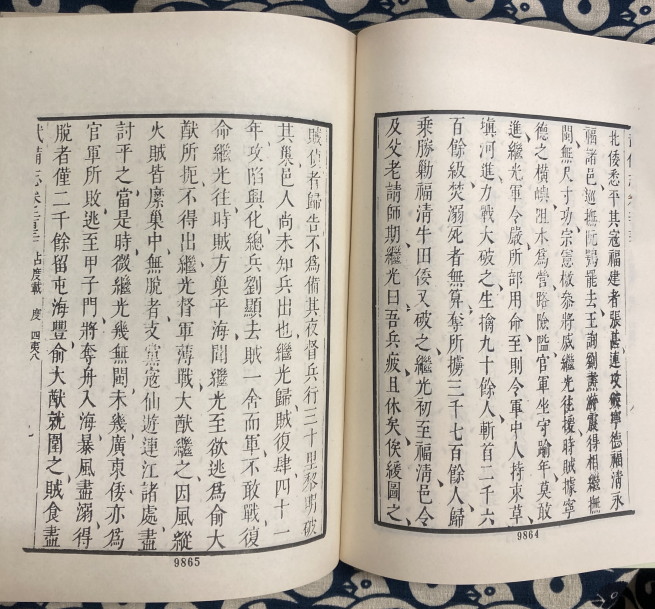 北倭悉平其寇福建者張甚連攻破寧德福清永
福諸邑巡撫阮鶚罷去王詢劉燾游震得相繼撫
閩無尺寸功宗憲檄參將戚繼光往援時賊據寧
德之橫嶼阻水爲營路險隘官軍坐守踰年莫敢
進繼光軍令嚴所部用命至則令軍中人持束草
填河進力戰大破之生擒九十餘人斬首二千六
百餘級焚溺死者無算奪所擄三千七百餘人歸
乘勝勦福清牛田倭又破之繼光初至福清邑令
及父老請師期繼光曰吾兵疲且休矣俟緩圖之
9864
賊偵者歸告不爲備其夜督兵行三十里黎明破
其巢邑人尚未知兵出也繼光歸賊復肆四十一
年攻陷興化總兵劉顯去賊一舍而軍不敢戰復
命繼光往時賊方巢平海聞繼光至欲逃爲俞大
猷所扼不得出繼光督軍薄戰大猷繼之因風縱
火賊皆縻巢中無脫者支黨寇仙遊連江諸處盡
討平之當是時微繼光幾無閩未幾廣東倭亦爲
官軍所敗逃至甲子門將奪舟入海暴風盡溺得
脫者僅二千餘留屯海豐俞大猷就圍之賊食盡
武備志卷 占度載 度 四夷八
9865